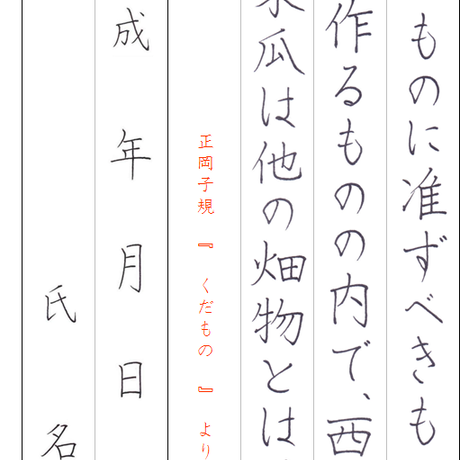 ものに准ずべきも
作るものの内で、西
瓜は他の畑物とは
正岡子規『くだもの』より
成年月日
氏名